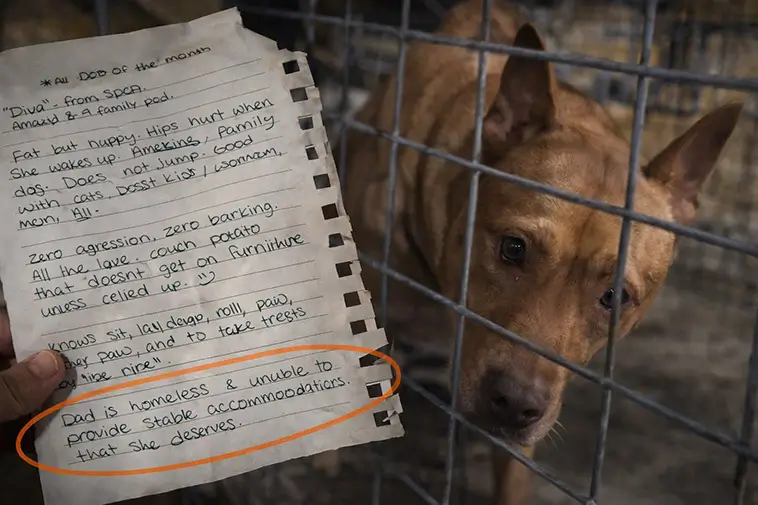 *All DOB of the month
"Diva" - from SPCA.
& 9 family pod.
Fat but huppy. Hips hurt when
She wakes up. Ameking, family
dog. Does not jump. Good
with cats, Dosst kids / wonnam,
men, All.
zero agression, zero barking.
All the lave. couch potato
that doesnt get on furnithre
unless celied up.
knows sit, roll, paw,
paw, and to take treats
nire".
Dad is homeless & unuble to
provide stable accommodations.
that she deserves.